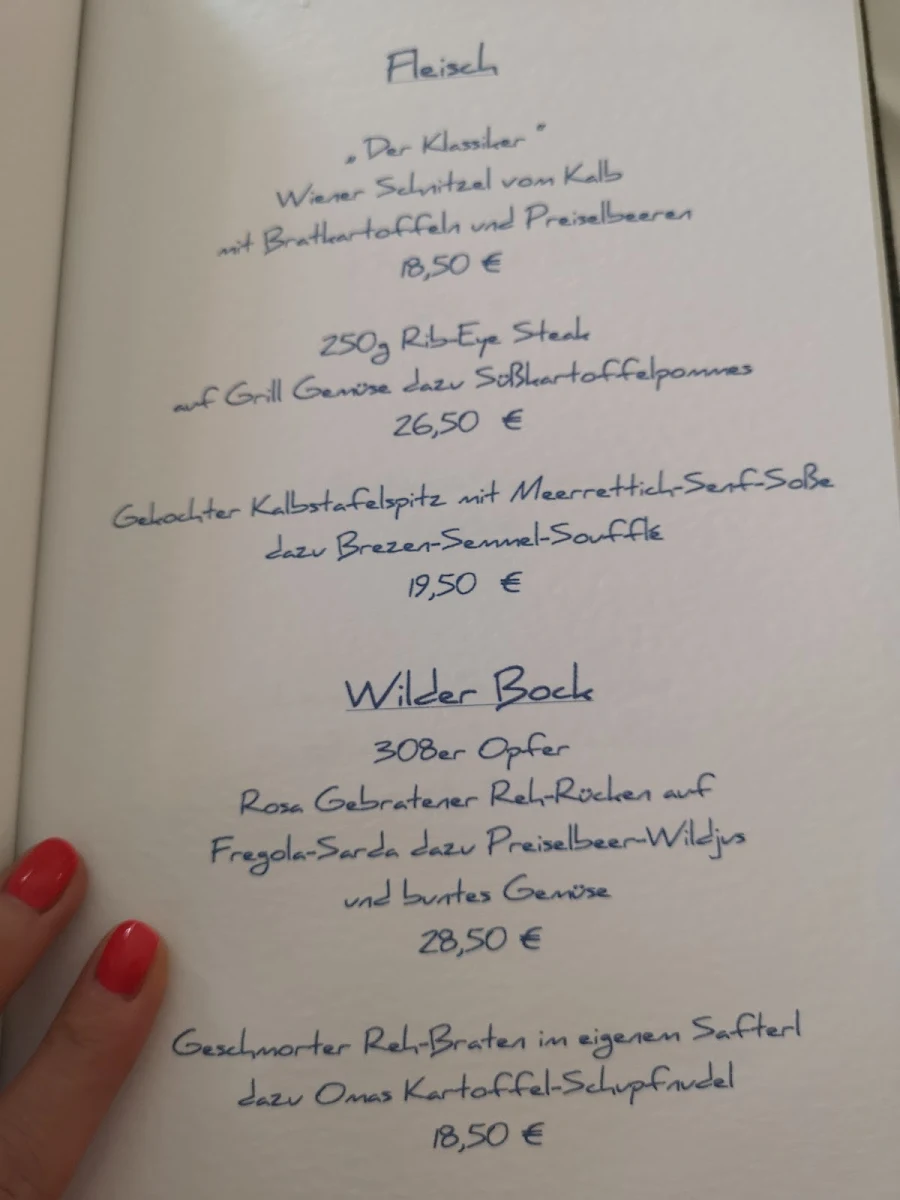 Fleisch
„Der Klassiker"
Wiener Schnitzel vom Kalb
mit Bratkartoffeln und Preiselbeeren
18,50 €
250g Rib-Eye Steak
auf Grill Gemüse dazu Süßkartoffelpommes
26,50 €
Gekochter Kalbstafelspitz mit Meerrettich-Senf-Soße
dazu Brezen-Semmel-Soufflé
19,50 €
Wilder Bock
308er Opfer
Rosa Gebratener Reh-Rücken auf
Fregola-Sarda dazu Preiselbeer-Wildjus
und buntes Gemüse
28,50 €
Geschmorter Reh-Braten im eigenem Safterl
dazu Omas Kartoffel-Schupfnudel
18,50 €